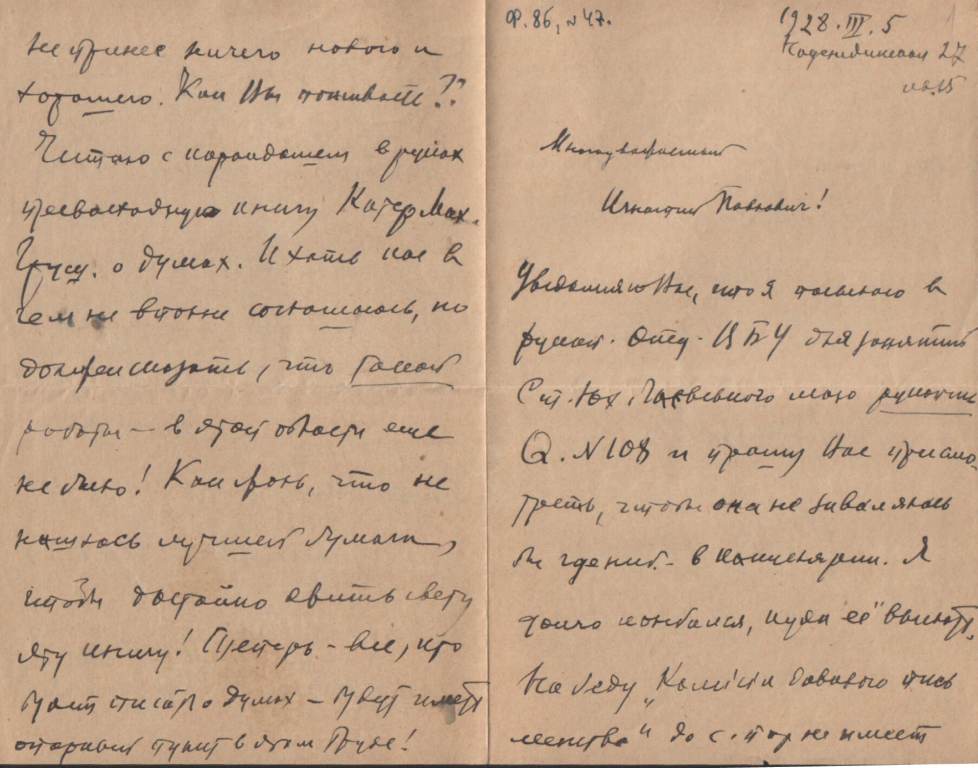 не принес ничего нового и
хорошего. Как Вы поживаете??
Читаю с карандашем в руках
превосходную книгу Катер. Мих.
Груш. о думах. И хоть кое в
чем не вполне соглашаюсь, но
должен сказать, что такой
работы – в этой области еще
не было! Как жаль, что не
нашлось лучшей бумаги,
чтобы достойно явить свету
эту книгу! Теперь – все, кто
будет писать о думах – будут иметь
отправной пункт в этом труде!
Ф. 86, N 47.
1928. III. 5
27
15
Многоуважаемый
Игнатий Павлович!
Уведомляю Вас, что я посылаю в
рукоп. Отд. ВБУ для занятий
Ст. Юх. мою рукопись
Q. N 108 и прошу Вас присмо-
треть, чтобы она не завалялась
бы где ниб. в канцелярии. Я
долго колебался, куда её выслать,
На беду „Комісія давнього пись
менства" до с. пор не имеет